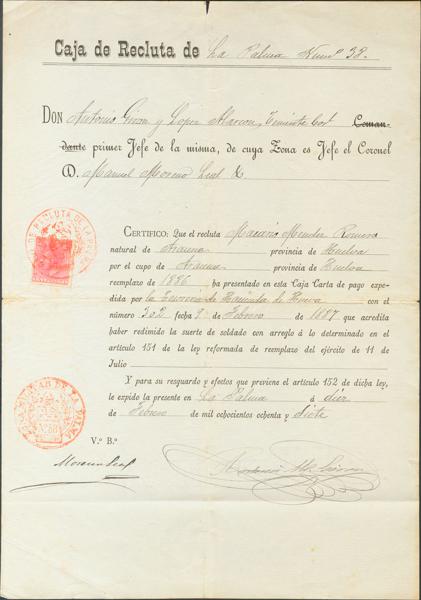 Caja de Recluta de La Palma Num.º 38.
DON Antonio Giron y Lopez Alarcon, Teniente Corl Coman-
dante primer Jefe de la misma, de cuya Zona es Jefe el Coronel
D. Manuel Moreno Leal &
CERTIFICO: Que el recluta Macario Mendez Romero
natural de Aracena provincia de Huelva
por el cupo de Aracena provincia de Huelva
reemplazo de 1886 ha presentado en esta Caja Carta de pago
expedida por la Tesoreria de Hacienda de Huelva con el
número 302 fecha 9 de Febrero de 1887 que acredita
haber redimido la suerte de soldado con arreglo á lo determinado en el
artículo 151 de la ley reformada de reemplazo del ejército de 11 de
Julio
Y para su resguardo y efectos que previene el artículo 152 de dicha ley,
le expido la presente en La Palma á diez
de Febrero de mil ochocientos ochenta y Siete
V.º B.º
Moreno Leal
DE RECLUTA DE LA PALMA
DE LA PALMA